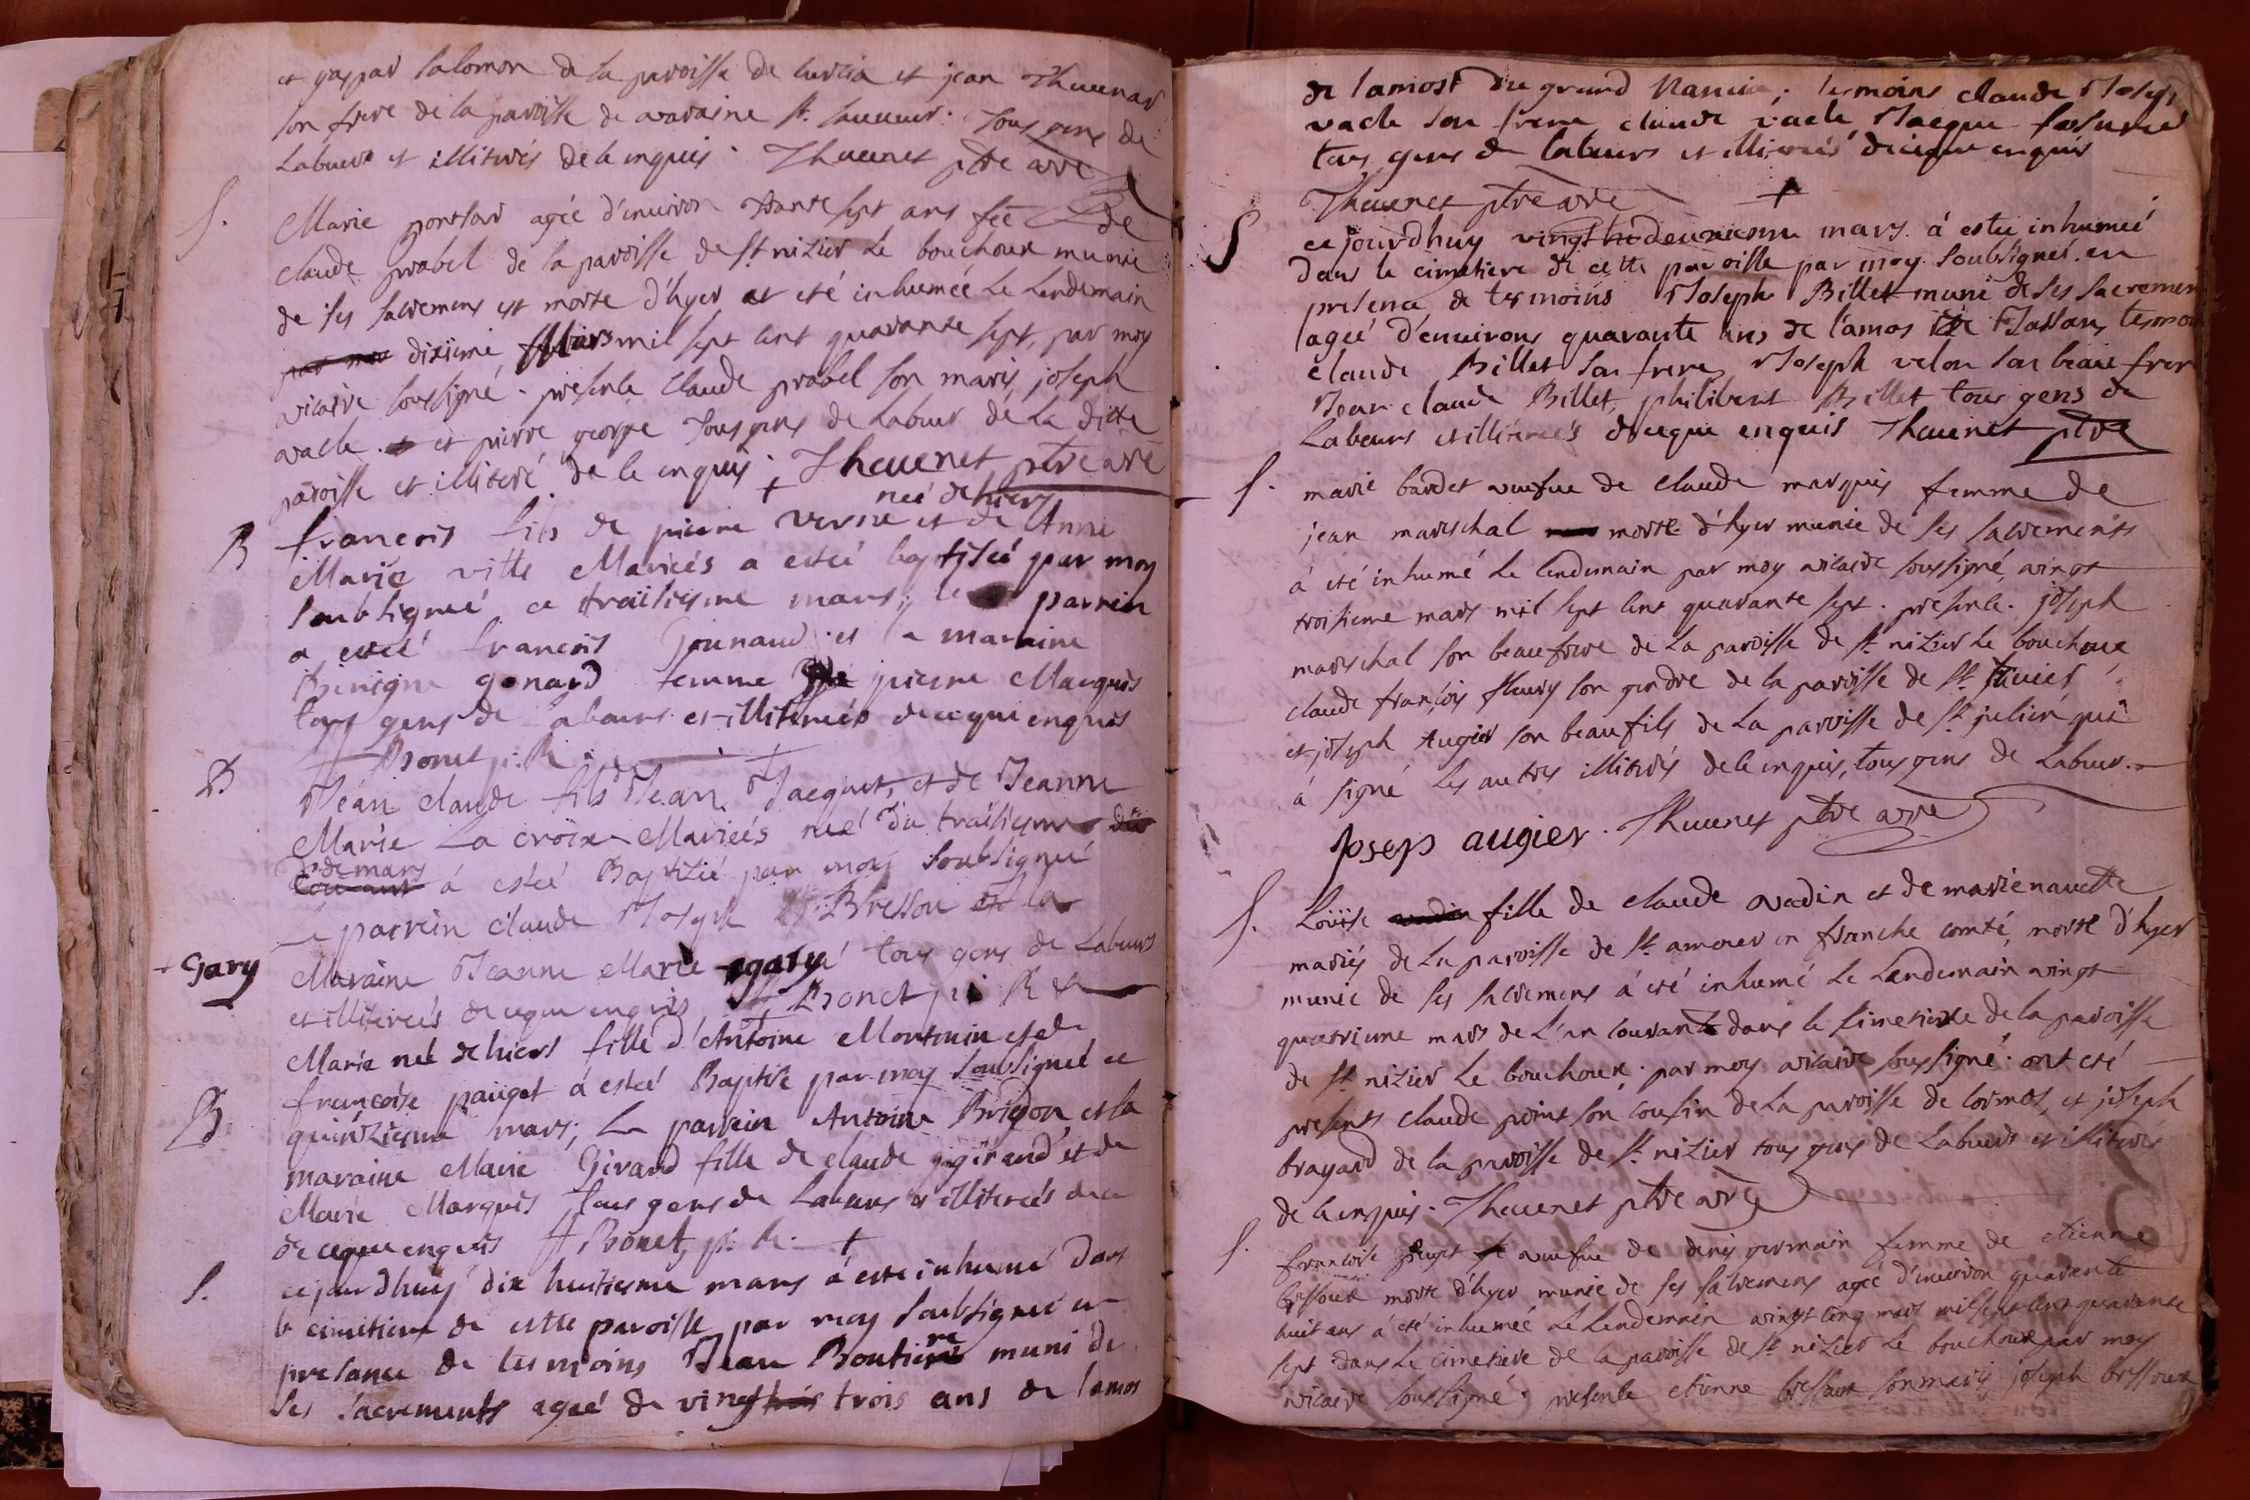 et gaspar salomon de la paroisse de curcia et jean Thevenar
son frere de la paroisse de varaine st. sauveur. tous gens de
Labeur et illiterés de le enquis. Thevenet ptre vire
S.
Marie pontsar agée d'environ trante sept ans fẽe de
claude prabel de la paroisse de st nizier Le bouchoux munie
de ses sacremens est morte d'hyer et eté inhumée Le Lendemain
dixieme Mars mil sept cent quarante sept, par moy
vicaire soussigné. presents claude prabel son maris, joseph
vacle. et pierre george tous gens de Labeur de La ditte
paroisse et illiteré de le enquis. Thevenet ptre vire
né de hiers
B
francois fils de pierre verne et de Anne
Marie ville Mariées a esteé baptiseé par moy
soubsigneé ce traisiesme mars; le parrein
a esteé francois Gounaud et la maraine
Benigne gonard femme de pierre Marquis
tous gens de labeurs et illiterés de ceque enquis
Bonet p: R.
B
Jean claude fils de Jean Jacquet, et de Jeanne
Marie La croix Marieés neé du traisiesme
de mars
courant á esteé Baptizié par moy soubsigneé
le parrein claude Joseph Bresson et la
+ Gary
Maraine Jeanne Marie gary tous gens de Labeurs
et illiterés de ceque enquis Bonet p: R
Marie neé de hiers fille d'Antoine Montmin et de
francoise pauget á esteé Baptisé par moy soubsigneé ce
B.
quinziesme mars; Le parrein Antoine Brigdon, et la
maraine Marie Girand fille de claude girand et de
Marie Marquis tous gens de Labeurs et illiterés de ce
de ceque enquis Bonet, p: R. +
S.
ce jourdhuy dix huitiesme mars á este inhumé dans
le cimetiere de cette paroisse par moy soubsigneé en
presance de tesmoins Jean Boutiere muni de
ses sacrements ageé de vingt trois trois ans de lamos
de lamost du grand Nanue; tesmoins claude Joseph
vacle son frere claude vacle Jacque
tous gens de labeurs et illiterés de ceque enquis
Thevenet ptre vire +
S
ce jourdhuy vingt deuxiesme mars á estee inhumeé
dans le cimetiere de cette paroisse par moy soubsigneé en
presence de tesmoins Joseph Billet muni de ses sacremen
ageé d'environs quarante ans de lamos de Jassans, tesmoin
claude Billet son frere, Joseph velon son beau frer
Jean claude Billet, philibert Billet tous gens de
Labeurs et illiterés de ceque enquis Thevenet ptre
S.
marie bardet veufve de claude marquis femme de
jean mareschal morte d'hyer munie de ses sacrements
á eté inhumé Le Lendemain par moy vicaire soussigné, vingt
troisieme mars mil sept cent quarante sept. presents. joseph
mareschal son beaufrere de La paroisse de st nizier Le bouchoux
claude françois fleury son gendre de la paroisse de st
et joseph Augier son beau fils de La paroisse de st julien qui
á signé Les autres illiterés de le enquis, tous gens de Labeur.
Joseps augier. Thevenet ptre vire
S.
Loüise vadin fille de claude vadin et de marie navette
mariés de La paroisse de st amour en franche comté, morte d'hyer
munie de ses sacremens á eté inhumé Le Lendemain vingt
quatrieme mars de L'an courant dans le simetiere de la paroisse
de st nizier Le bouchoux. par moy vicaire soussigné. ont eté
presents claude point son cousin de La paroisse de cormos, et joseph
brayard de la paroisse de st nizier tous gens de Labeurs et illiterés
de le enquis. Thevenet ptre vire
S.
francoise piuget veufve de denis germain femme de etienne
bressoux morte d'hyer munie de ses sacremens agée d'environ quarante
huit ans á eté inhumeé Le Lendemain vingt cinq mars mil sept cent quarante
sept dans Le cimetiere de la paroisse de st nizier Le bouchoux par moy
vicaire soussigné. presents etienne bressoux son mary joseph bressoux